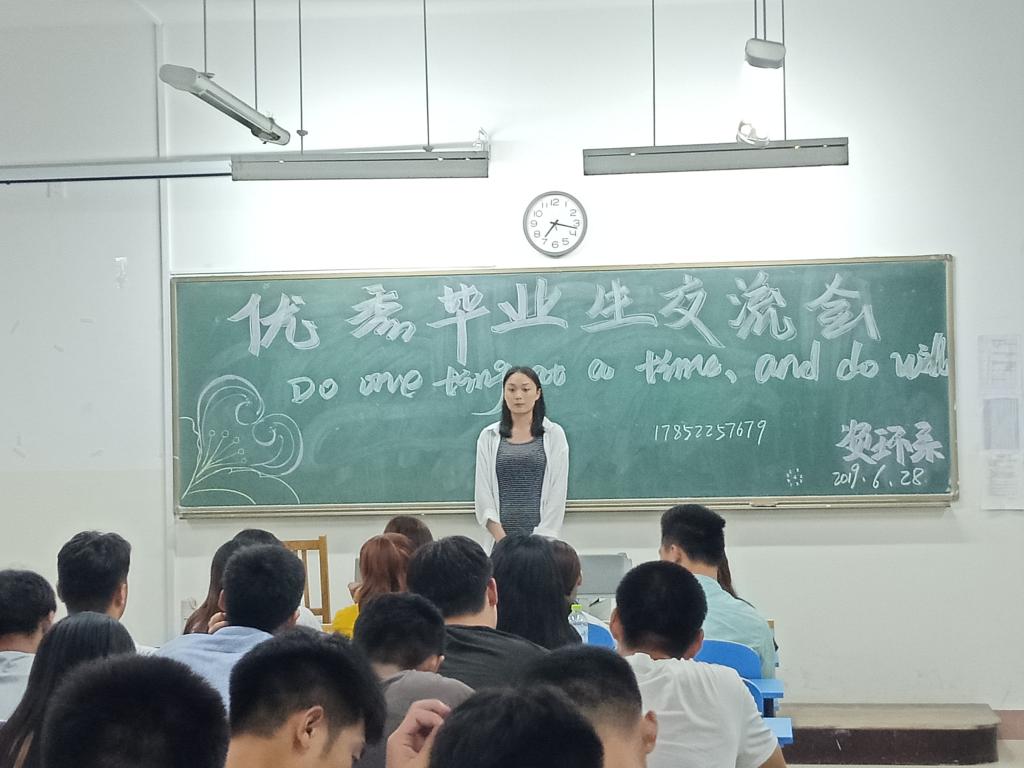 优秀毕业生交流会
Do one ting at a time, and do well
17852257679
资环系
2019.6.28